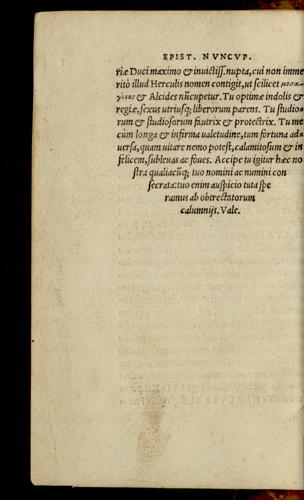 EPIST. NVNCVP.
riæ Duci maximo & inuictiss. nupta, cui non imme
ritò illud Herculis nomen contigit, ut scilicet
& Alcides nũcupetur. Tu optimæ indolis &
regiæ, sexus utriusq; liberorum parens. Tu studio-
rum & studiosorum fautrix & protectrix. Tu me
cùm longa & infirma ualetudine, tum fortuna ad-
uersa, quam uitare nemo potest, calamitosum & in
felicem, subleuas ac foues. Accipe tu igitur hæc no
stra qualiacũq; tuo nomini ac numini con
secrata: tuo enim auspicio tuta spe
ramus ab obtrectatorum
calumnijs. Vale.